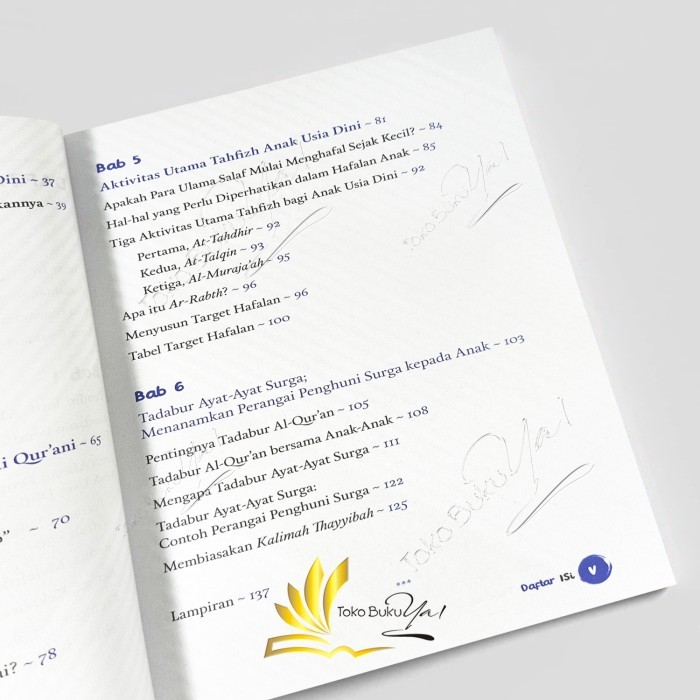 Dini ~ 37
kannya ~ 39
i Qur'ani ~ 65
" ~ 70
ai? ~ 78
Bab 5
Aktivitas Utama Tahfizh Anak Usia Dini ~ 81
Apakah Para Ulama Salaf Mulai Menghafal Sejak Kecil? ~ 84
Hal-hal yang Perlu Diperhatikan dalam Hafalan Anak ~ 85
Tiga Aktivitas Utama Tahfizh bagi Anak Usia Dini ~ 92
Pertama, At-Tahdhir ~ 92
Kedua, At-Talqin ~ 93
Ketiga, Al-Muraja'ah ~ 95
Apa itu Ar-Rabth? ~ 96
Menyusun Target Hafalan ~ 96
Tabel Target Hafalan ~ 100
Bab 6
Tadabur Ayat-Ayat Surga;
Menanamkan Perangai Penghuni Surga kepada Anak ~ 103
Pentingnya Tadabur Al-Qur'an ~ 105
Tadabur Al-Qur'an bersama Anak-Anak ~ 108
Mengapa Tadabur Ayat-Ayat Surga ~ 111
Tadabur Ayat-Ayat Surga:
Contoh Perangai Penghuni Surga ~ 122
Membiasakan Kalimah Thayyibah ~ 125
Lampiran ~ 137
***
Daftar ISi v
Toko Buku Ya!
Toko Buku Ya!
Toko Buku Ya!